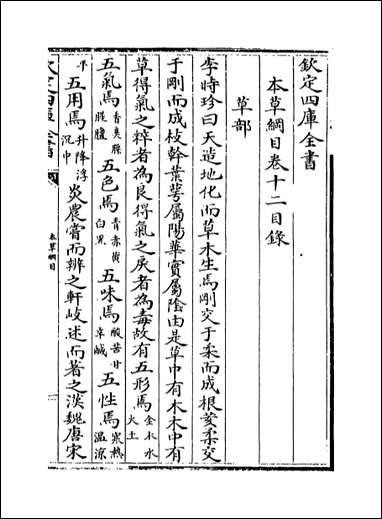 欽定四庫全書
本草綱目卷十二目錄
草部
李時珍曰天造地化而草木生焉剛交于柔而成根荄柔交
于剛而成枝幹葉萼屬陽華實屬陰由是草中有木木中有
草得氣之粹者為良得氣之戾者為毒故有五形焉金木水火土
五氣焉香臭臊腥膻五色焉青赤黄白黑五味焉酸苦甘辛鹹五性焉寒熱温涼
平五用焉升降浮沉中炎農嘗而辨之軒岐述而著之漢魏唐宋
欽定四庫全書
本草綱目
一